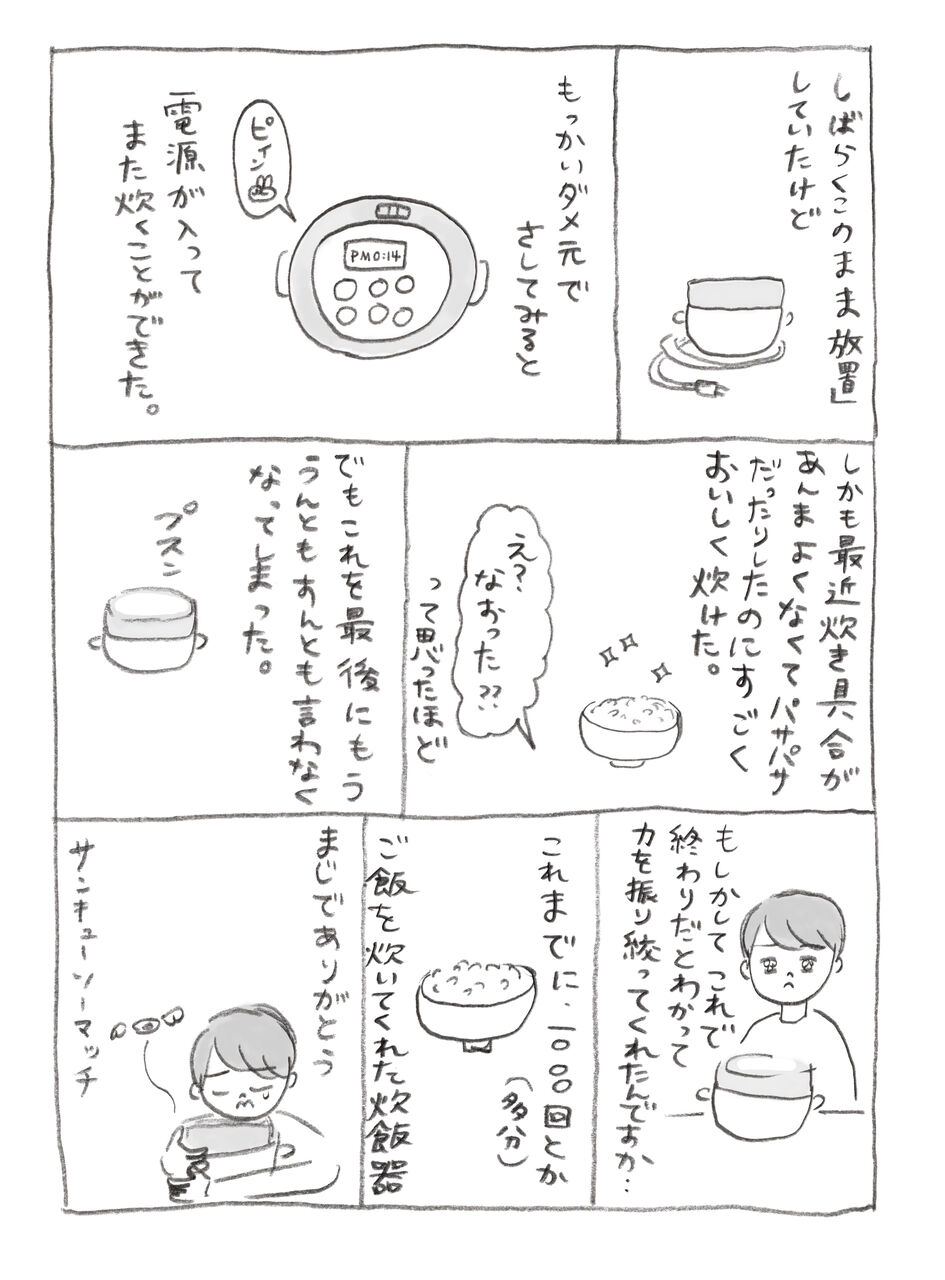 しばらくこのまま放置」
していたけど
もっかいダメ元で
さしてみると
PM0:14
ピィン
電源が入って
また炊くことができた。
しかも最近炊き具合が
あんまよくなくてパサパサ
だったりしたのにすごく
おいしく炊けた。
え?
なおった??
って思ったほど
でもこれを最後にもう
うんともすんとも言わなく
なってしまった。
プスン
もしかしてこれで
終わりだとわかって
力を振り絞ってくれたんですか…
これまでに、一〇〇〇回とか
(多分)
ご飯を炊いてくれた炊飯器
まじでありがとう
サンキューソーマッチ